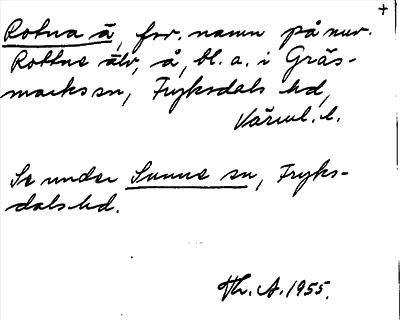 +
Rotna å, for. namn på nuv.
Rottne älv, å, bl. a. i Gräs-
marks sn, Fryksdals hd,
Värml. l.
Se under Sunne sn, Fryks-
dals hd.
Th. A. 1955.